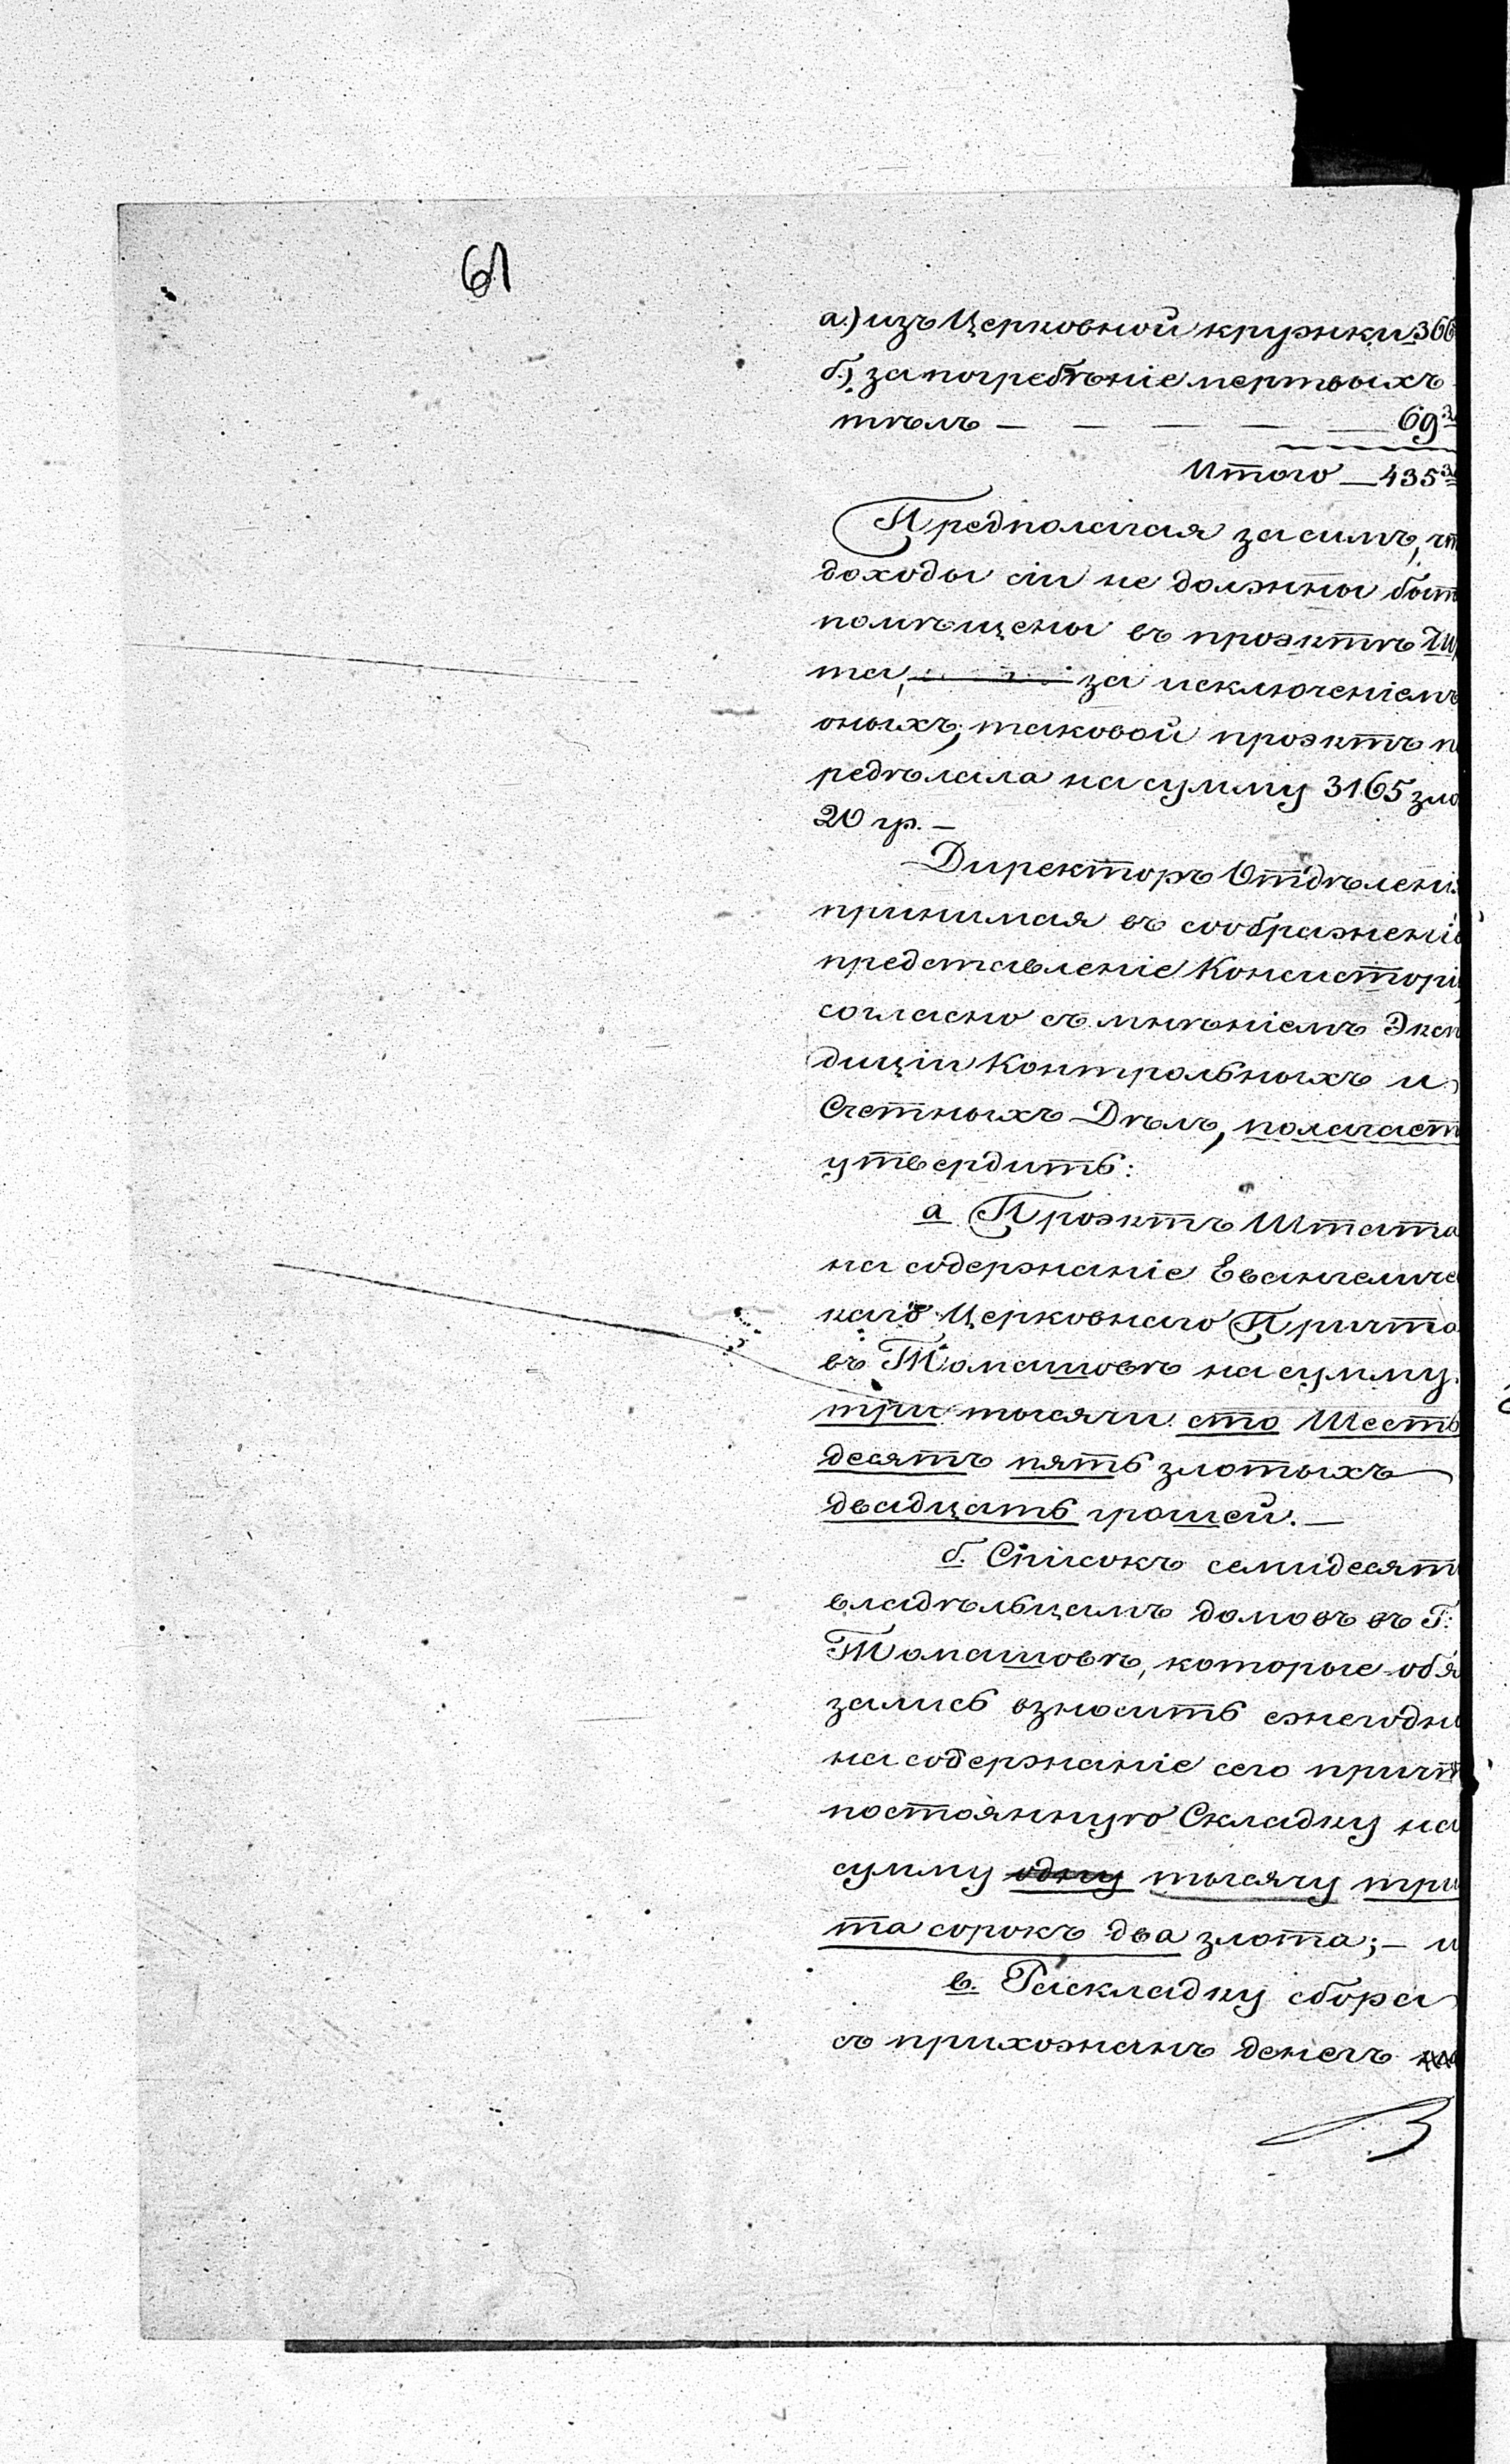 61
а.) изъ Церковной кружки 366
б.) за погребѣніе мертвыхъ
тѣлъ — — — — — 69 з
Итого — 435 з
Предполагая за симъ, чт
доходы сіи не должны быт
помѣщены въ проэктѣ Шт
та, за исключеніемъ
оныхъ, таковой проэктъ п
редѣлала на сумму 3165 зло
20 гр. —
Директоръ Отдѣлені
принимая въ соображеніе
представленіе Консисторіи
согласно съ мнѣніемъ Эксп
диціи Контрольныхъ и
Счетныхъ Дѣлъ, полагает
утвердить:
а Проэктъ Штата
на содержаніе Евангеличес
каго Церковнаго Причта
въ Томашовѣ на сумму
три тысячи сто Шесть
десятъ пять злотыхъ
двадцать грошей. —
б. Списокъ семидесяти
владѣльцамъ домовъ въ Г:
Томашовѣ, которые обя
зались взносить ежегодно
на содержаніе сего причт
постоянную Складку на
сумму одну тысячу три
та сорокъ два злота; — и
в. Раскладку сбора
съ прихожанъ денегъ на